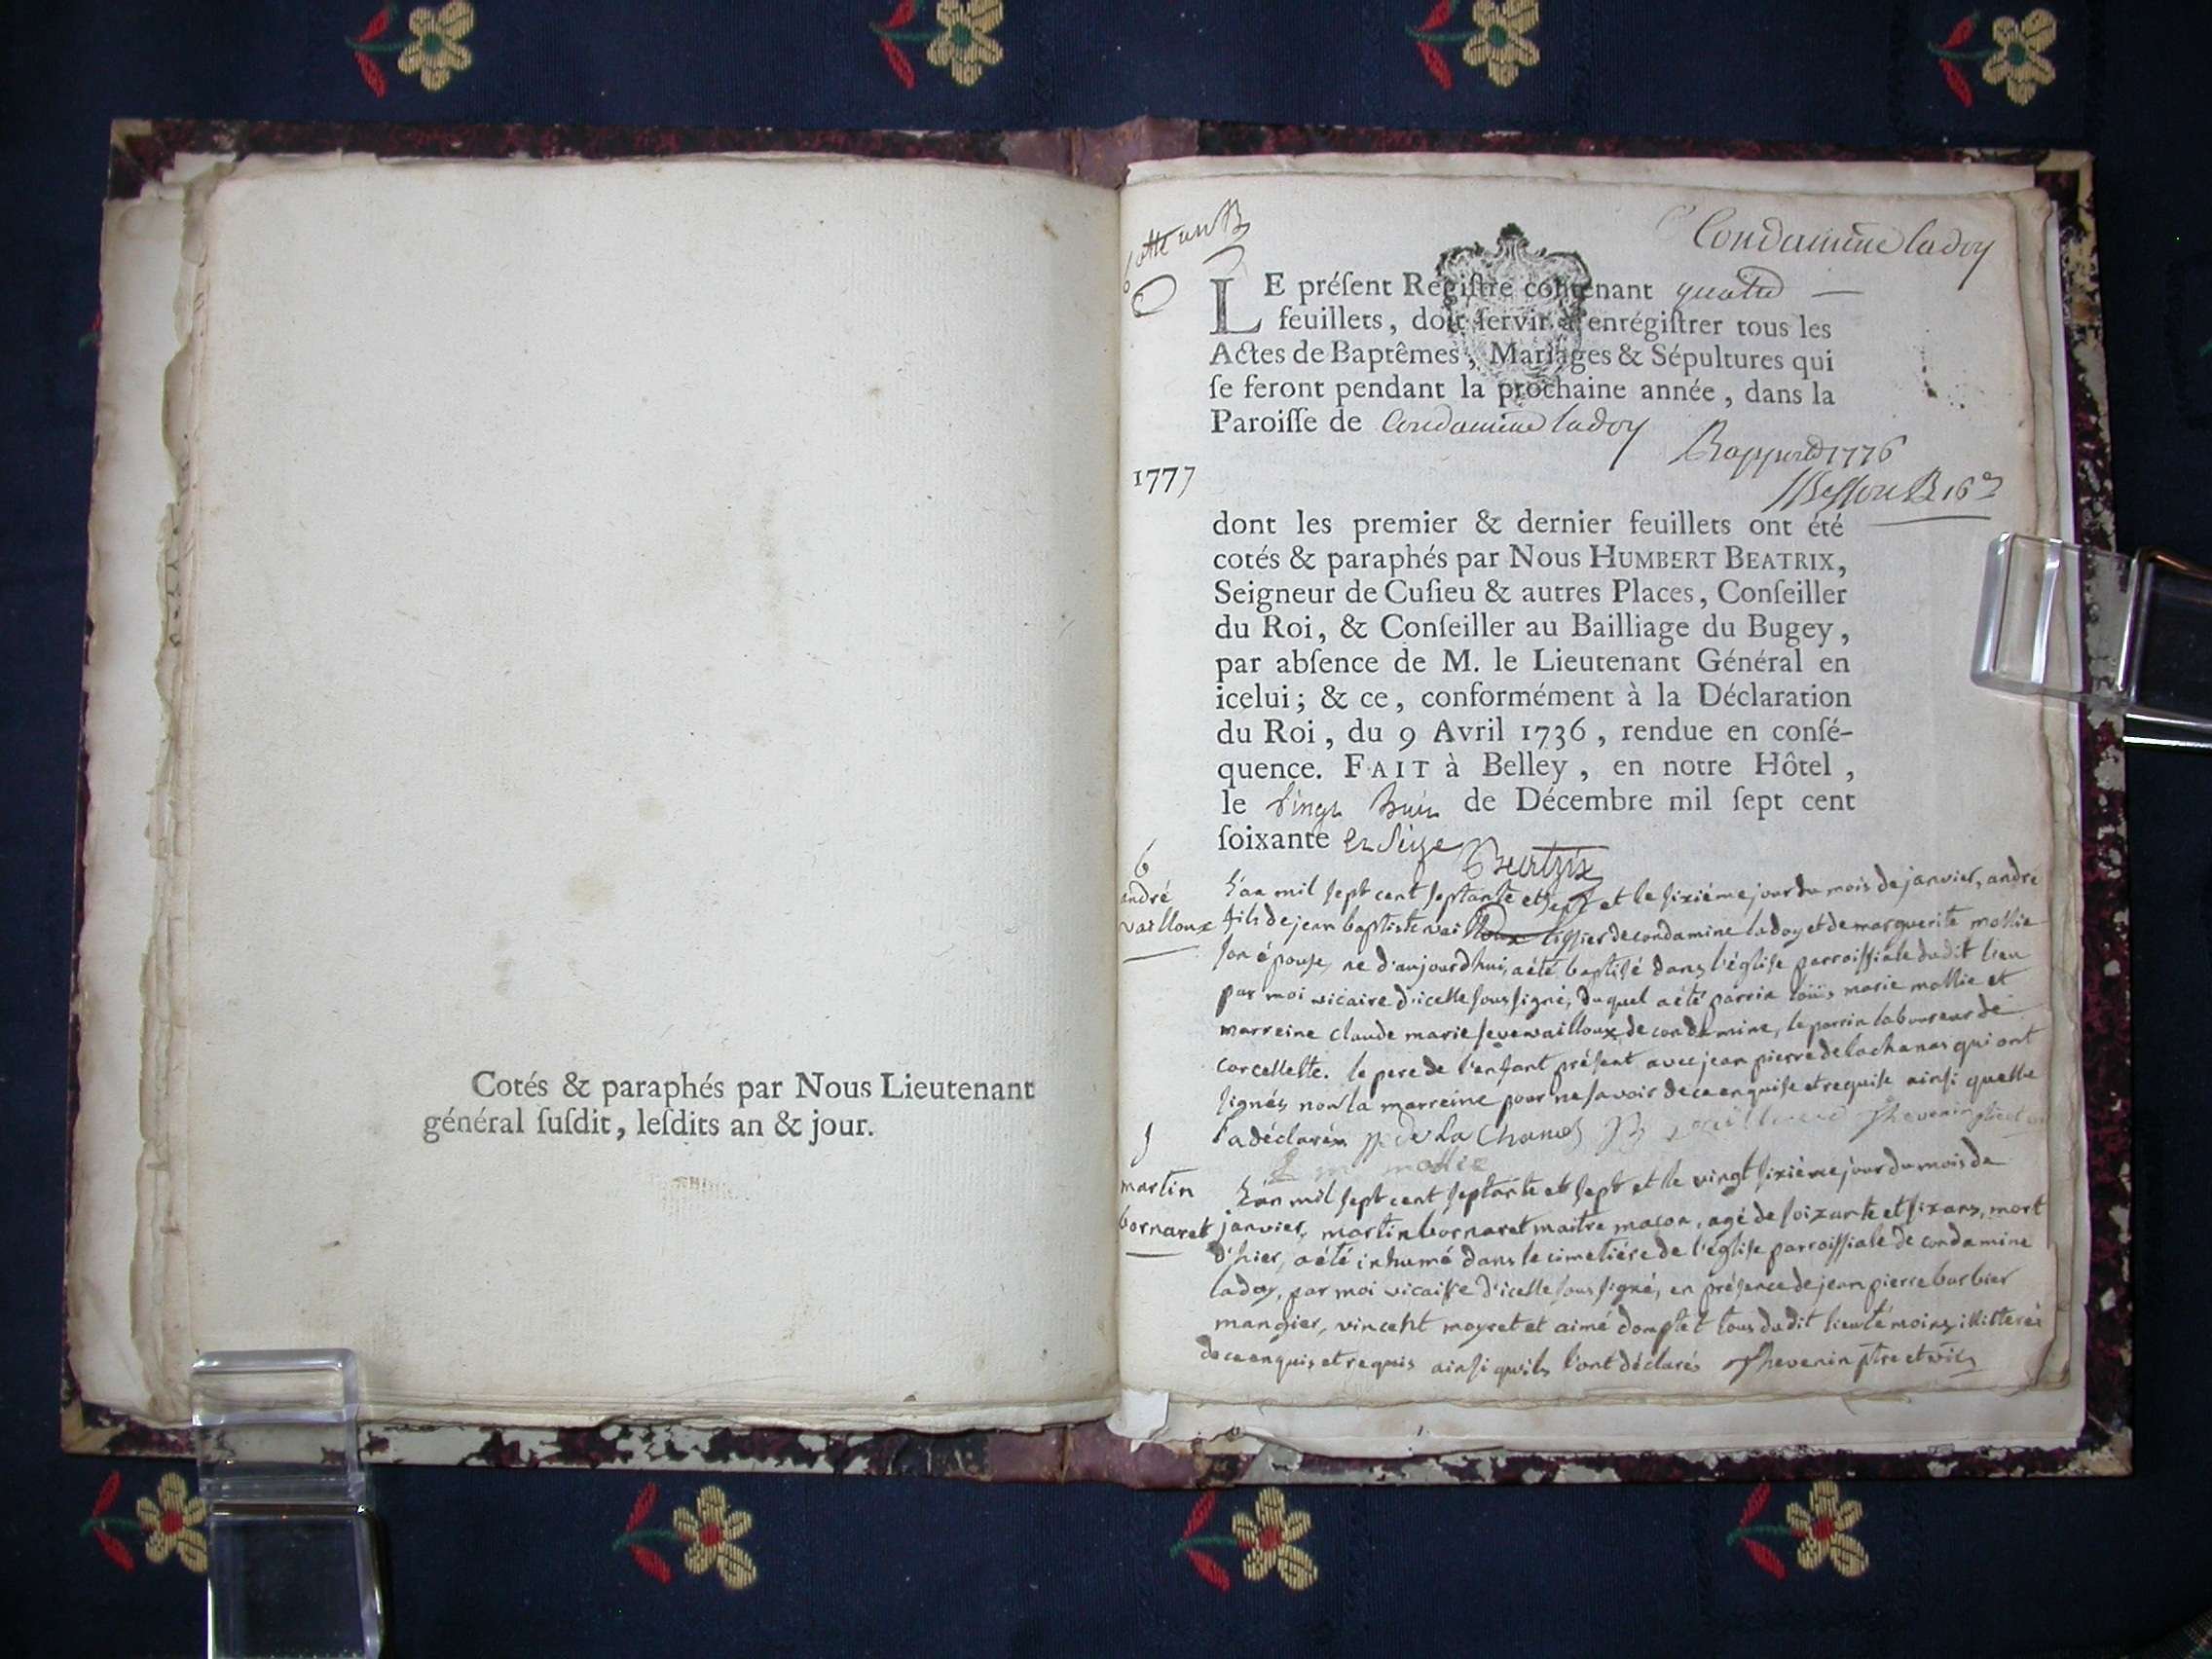 Cotés & paraphés par Nous Lieutenant
général ſuſdit, leſdits an & jour.
Condamine ladoy
LE préſent Regiſtre contenant quatre
feuillets, doit ſervir à enrégiſtrer tous les
Actes de Baptêmes, Mariages & Sépultures qui
ſe feront pendant la prochaine année, dans la
Paroiſſe de Condamine ladoy
1776
1777
dont les premier & dernier feuillets ont été
cotés & paraphés par Nous HUMBERT BEATRIX,
Seigneur de Cuſieu & autres Places, Conſeiller
du Roi, & Conſeiller au Bailliage du Bugey,
par abſence de M. le Lieutenant Général en
icelui; & ce, conformément à la Déclaration
du Roi, du 9 Avril 1736, rendue en conſé-
quence. FAIT à Belley, en notre Hôtel,
le vingt huit de Décembre mil ſept cent
ſoixante et Seize
Beatrix
6
andré
vailloux
L'an mil sept cent septante et sept et le sixiéme jour du mois de janvier, andré
fils de jean baptiste vailloux tissier de condamine ladoy et de marguerite mollie
son épouse, né d'aujourdhui, a été baptisé dans l'église parroissiale dudit lieu
par moi vicaire d'icelle soussigné, duquel a été parrin loüis marie mollie et
marreine claude marie seve vailloux de condamine, le parrin laboureur de
corcellette. le pere de l'enfant présent avec jean pierre delachanas qui ont
signés non la marreine pour ne savoir de ce enquise et requise ainsi quelle
l'a déclarée De La Chanas Thevenin
mollie
martin
bornaret
L'an mil sept cent septante et sept et le vingt sixiéme jour du mois de
janvier, martin bornaret maitre macon, agé de soixante et six ans, mort
d'hier, a été inhumé dans le cimetiére de l'église parroissiale de condamine
ladoy, par moi vicaire d'icelle soussigné, en présence de jean pierre barbier
mangier, vincent moyret et aimé domptet tous dudit lieu témoins illitterés
de ce enquis et requis ainsi qu'ils l'ont déclarés Thevenin ptre et vic